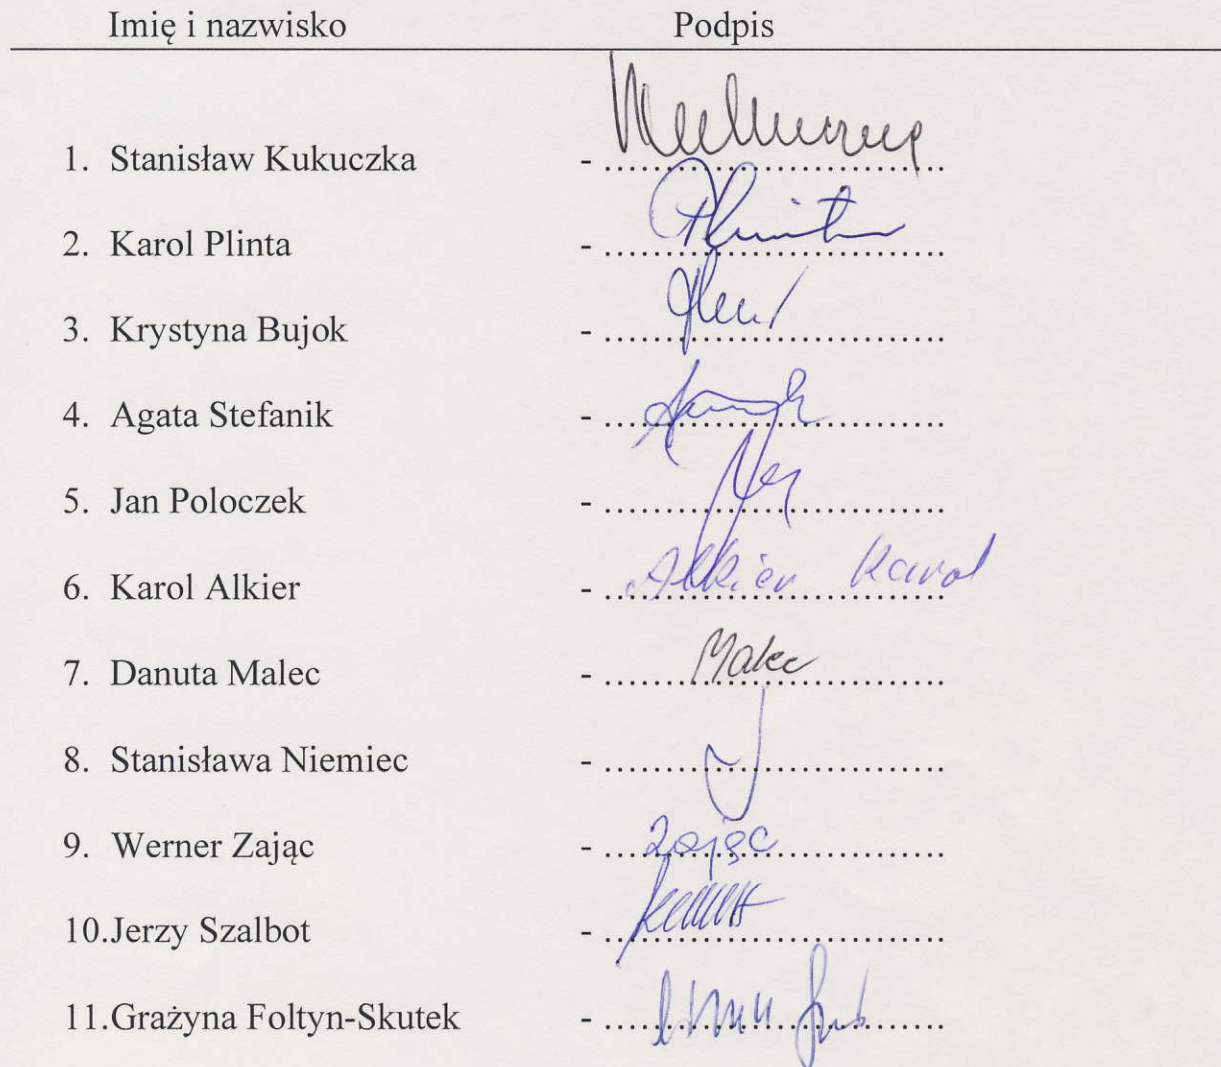 Imię i nazwisko Podpis
1. Stanisław Kukuczka - ..................................
2. Karol Plinta - Plinta
3. Krystyna Bujok - ..................................
4. Agata Stefanik - ..................................
5. Jan Poloczek - ..................................
6. Karol Alkier - Alkier Karol
7. Danuta Malec - Malec
8. Stanisława Niemiec - ..................................
9. Werner Zając - Zając
10.Jerzy Szalbot - ..................................
11.Grażyna Foltyn-Skutek - ..................................